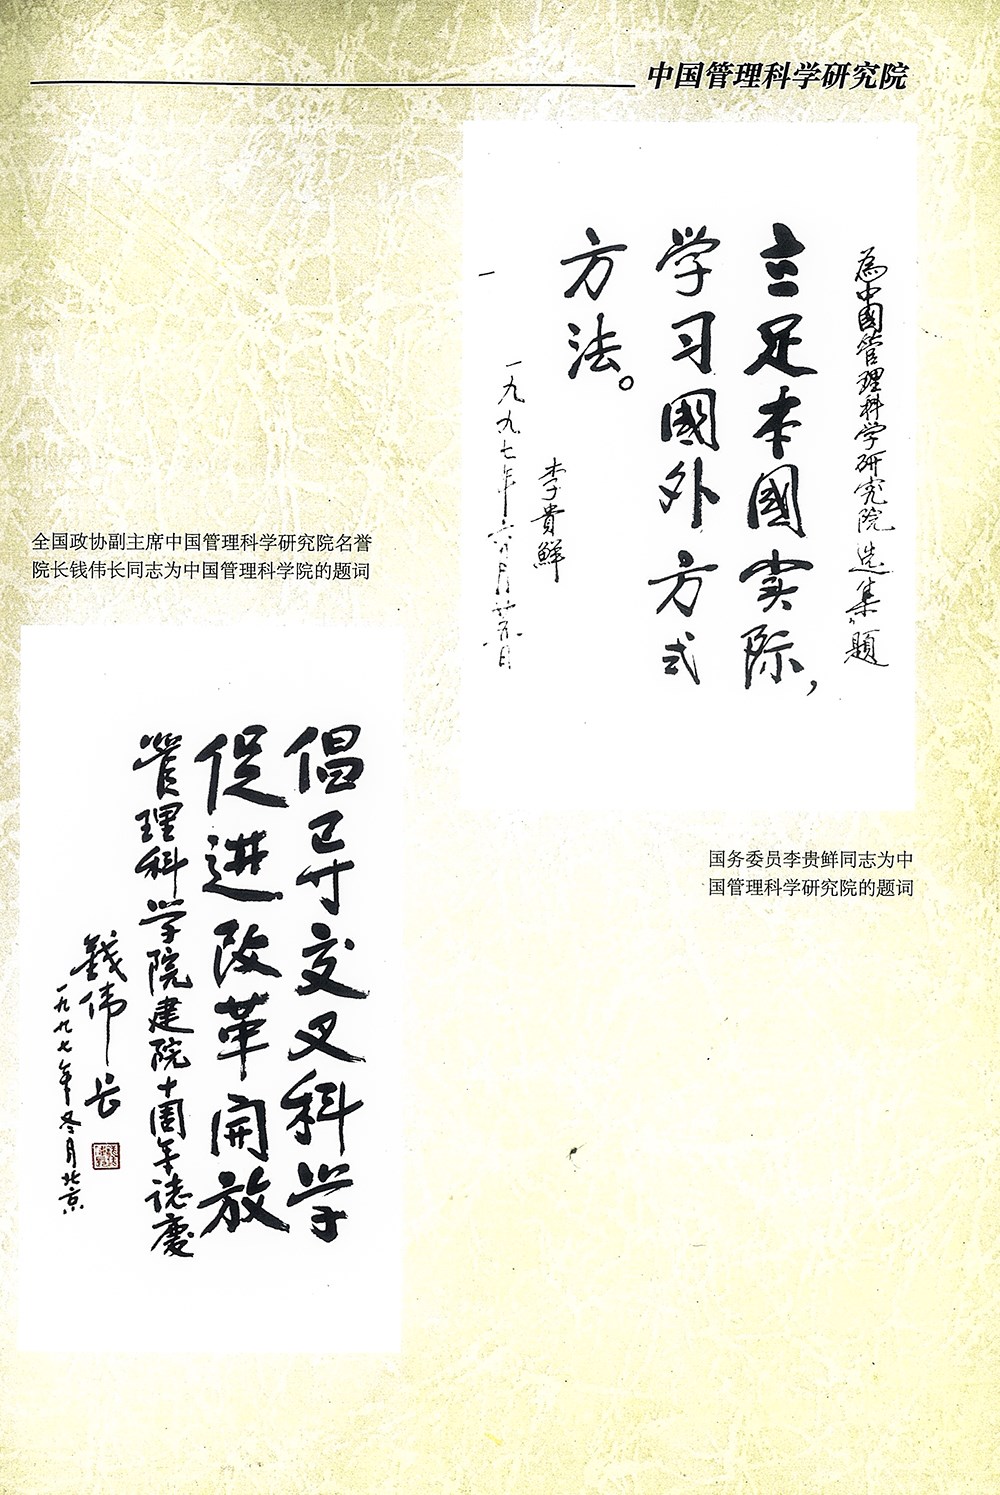 中国管理科学研究院
為中國管理科学研究院选集題
立足本國实际，
学习國外方式
方法。
李貴鮮
一九九七年六月廿五日
国务委员李贵鲜同志为中
国管理科学研究院的题词
全国政协副主席中国管理科学研究院名誉
院长钱伟长同志为中国管理科学院的题词
倡导交叉科学
促进改革開放
管理科学院建院十周年誌慶
錢伟长
一九九七年冬月北京